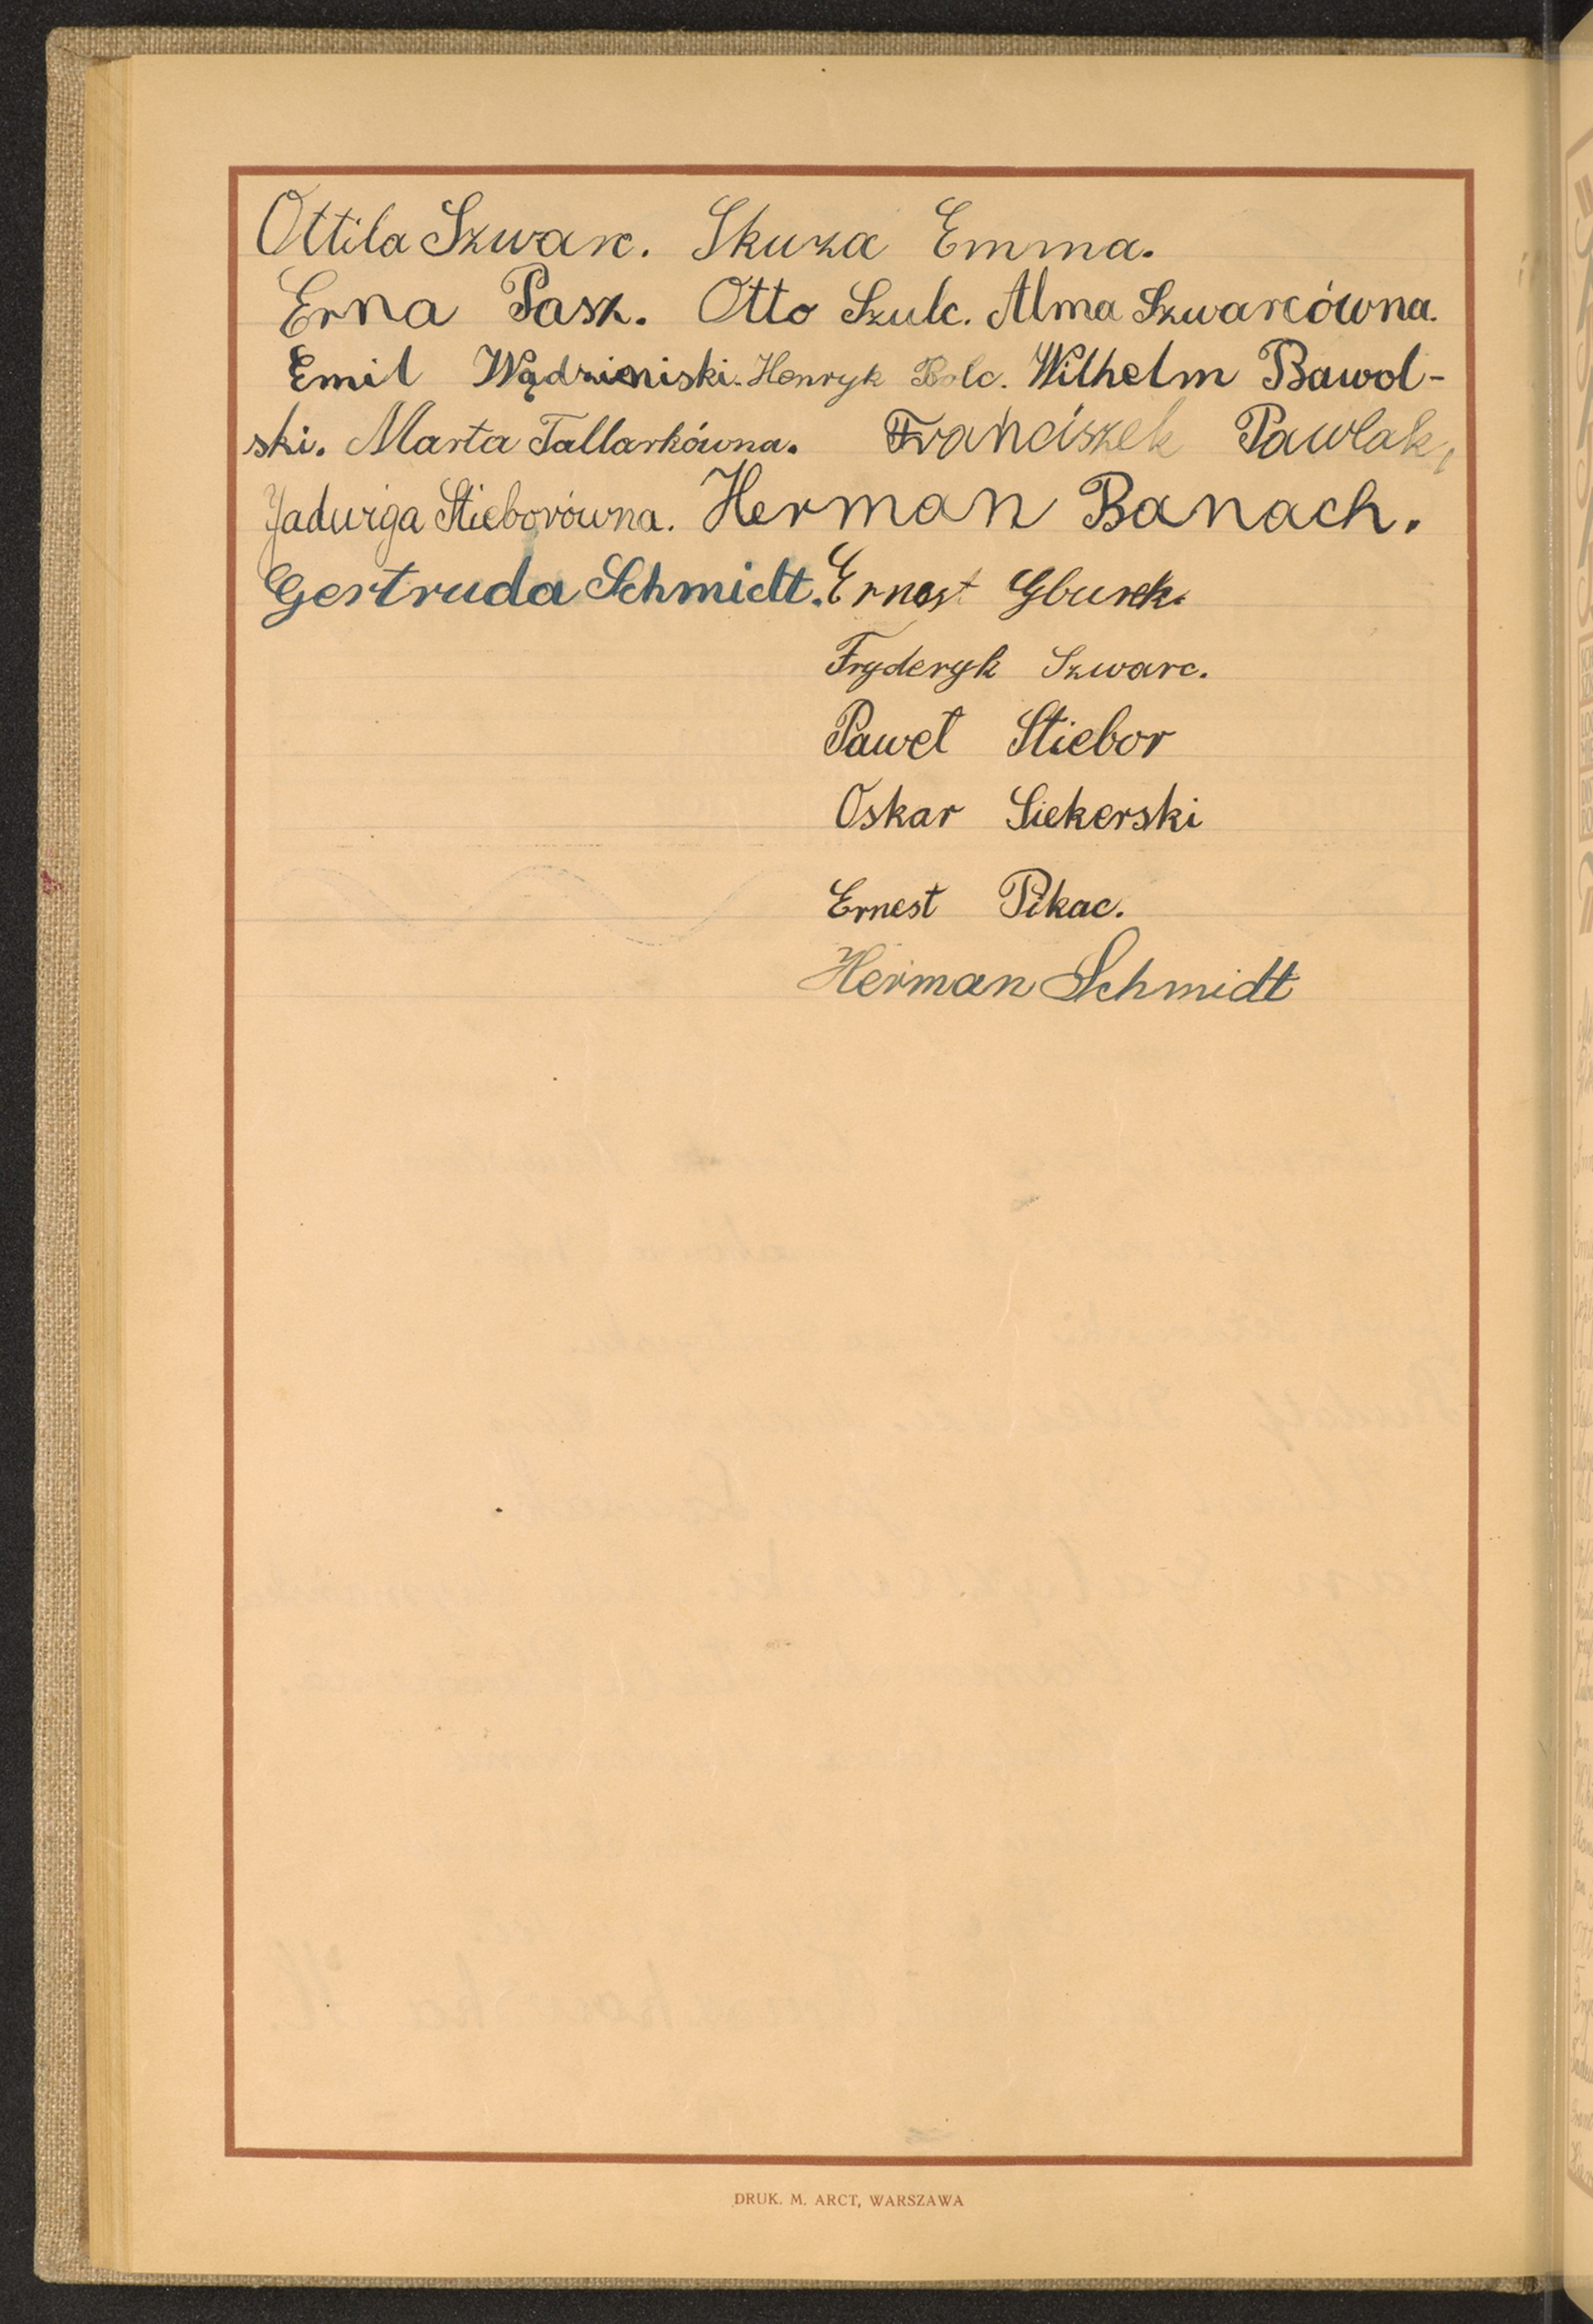 Ottila Szwarc. Skuza Emma.
Erna Pasz. Otto Szulc. Alma Szwarcówna.
Emil Wądziniski. Henryk Bolc. Wilhelm Bawol-
ski. Marta Tallarkówna. Franciszek Pawlak,
Jadwiga Stieborówna. Herman Banach.
Gertruda Schmidt. Ernest Gburek.
Fryderyk Szwarc.
Paweł Stiebor
Oskar Siekerski
Ernest Pikac.
Herman Schmidt
DRUK. M. ARCT, WARSZAWA